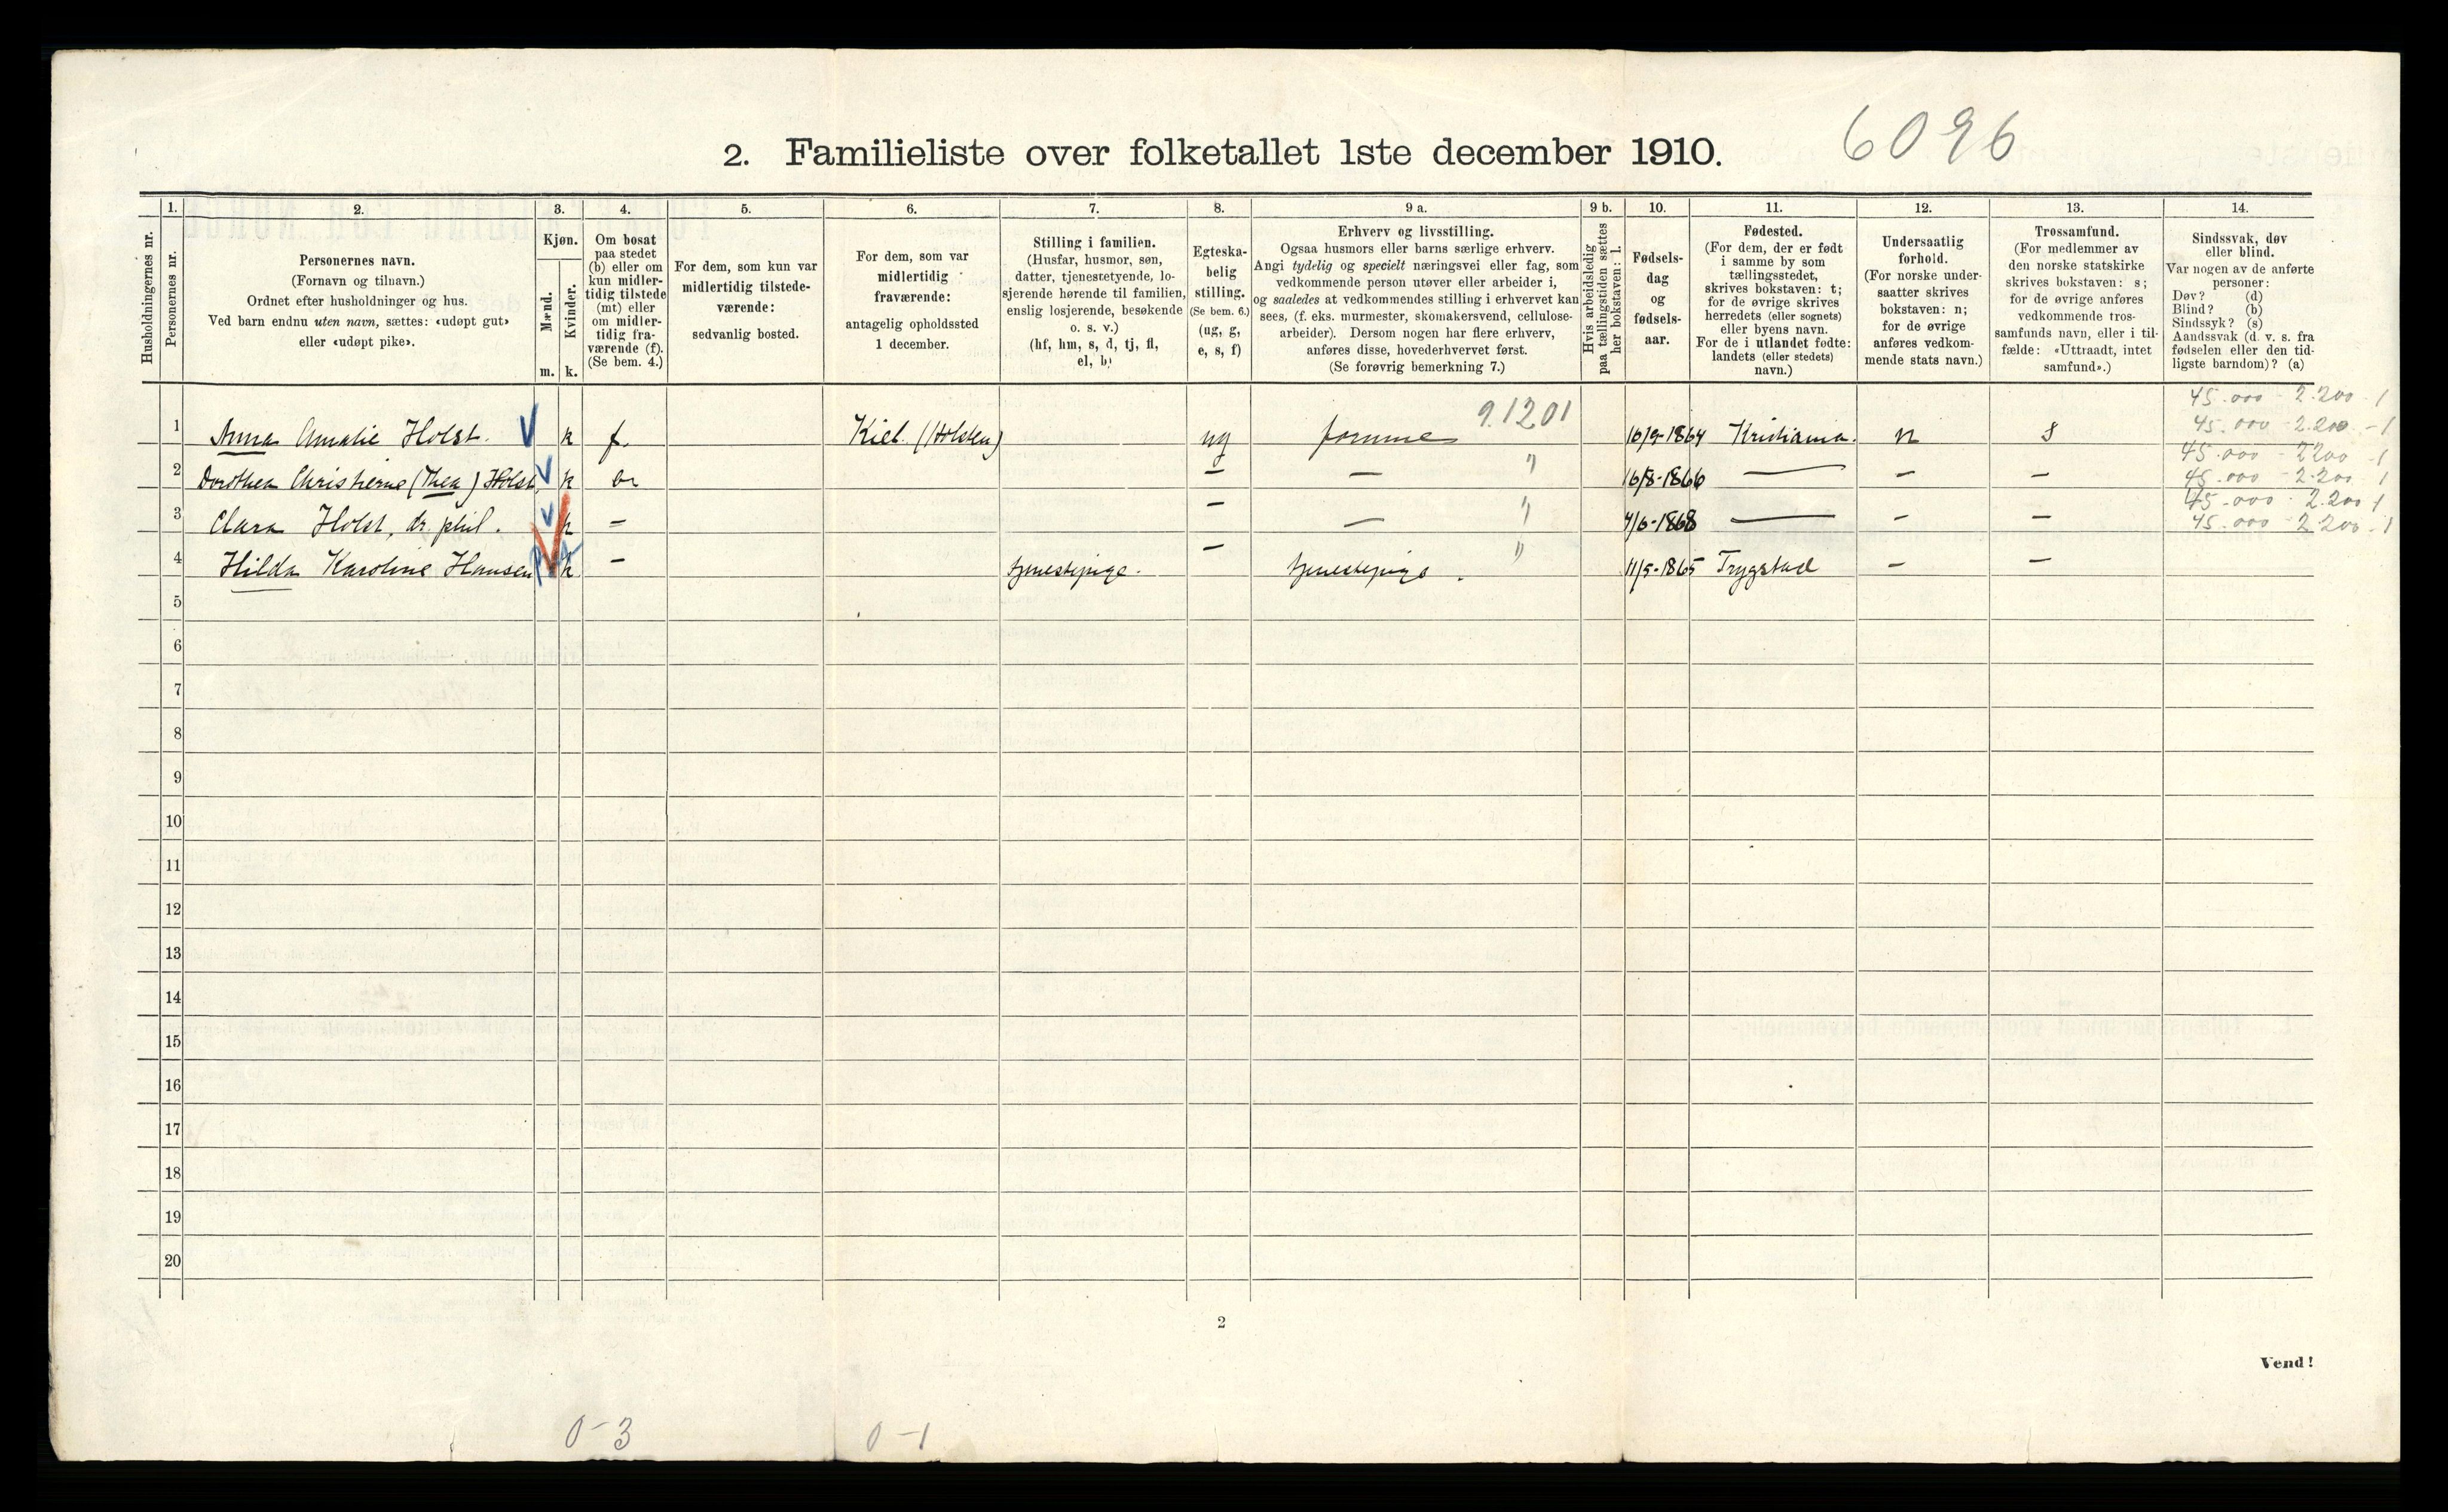 6096
2. Familieliste over folketallet 1ste december 1910.
Husholdningernes nr.
1.
Personernes nr.
2.
Personernes navn.
(Fornavn og tilnavn.)
Ordnet efter husholdninger og hus.
Ved barn endnu uten navn, sættes: «udøpt gut»
eller «udøpt pike».
3.
Kjøn.
Mænd.
m.
Kvinder.
k.
4.
Om bosat
paa stedet
(b) eller om
kun midler-
tidig tilstede
(mt) eller
om midler-
tidig fra-
værende (f).
(Se bem. 4.)
5.
For dem, som kun var
midlertidig tilstede-
værende:
sedvanlig bosted.
6.
For dem, som var
midlertidig
fraværende:
antagelig opholdssted
1 december.
7.
Stilling i familien.
(Husfar, husmor, søn,
datter, tjenestetyende, lo-
sjerende hørende til familien,
enslig losjerende, besøkende
o. s. v.)
(hf, hm, s, d, tj, fl,
el, b)
8.
Egteska-
belig
stilling.
(Se bem. 6.)
(ug, g,
e, s, f)
9 a.
Erhverv og livsstilling.
Ogsaa husmors eller barns særlige erhverv.
Angi tydelig og specielt næringsvei eller fag, som
vedkommende person utøver eller arbeider i,
og saaledes at vedkommendes stilling i erhvervet kan
sees, (f. eks. murmester, skomakersvend, cellulose-
arbeider). Dersom nogen har flere erhverv,
anføres disse, hovederhvervet først.
(Se forøvrig bemerkning 7.)
9 b.
Hvis arbeidsledig
paa tællingstiden sættes
her bokstaven: l.
10.
Fødsels-
dag
og
fødsels-
aar.
11.
Fødested.
(For dem, der er født
i samme by som
tællingsstedet,
skrives bokstaven: t;
for de øvrige skrives
herredets (eller sognets)
eller byens navn.
For de i utlandet fødte:
landets (eller stedets)
navn.)
12.
Undersaatlig
forhold.
(For norske under-
saatter skrives
bokstaven: n;
for de øvrige
anføres vedkom-
mende stats navn.)
13.
Trossamfund.
(For medlemmer av
den norske statskirke
skrives bokstaven: s;
for de øvrige anføres
vedkommende tros-
samfunds navn, eller i til-
fælde: «Uttraadt, intet
samfund».)
14.
Sindssvak, døv
eller blind.
Var nogen av de anførte
personer:
Døv? (d)
Blind? (b)
Sindssyk? (s)
Aandssvak (d. v. s. fra
fødselen eller den tid-
ligste barndom)? (a)
45.000 - 2.200 - 1
1 Anna Amalie Holst. k f. Kiel. (Holsten) ug formue 9.1201 10/9-1864 Kristiania. n s 45.000 - 2.200 - 1
45.000 - 2200 - 1
2 Dorothea Christierne (Thea) Holst, k b — — " 16/8-1866 — — — 45.000 - 2.200 1
45.000 - 2.200 1
3 Clara Holst, dr. phil. k — — — " 4/6-1868 — — — 45.000 - 2.200 - 1
4 Hilda Karoline Hansen k — tjenestepige. — tjenestepige. " 11/5-1865 Trygstad — —
5
6
7
8
9
10
11
12
13
14
15
16
17
18
19
20
2
Vend!
0-3 0-1